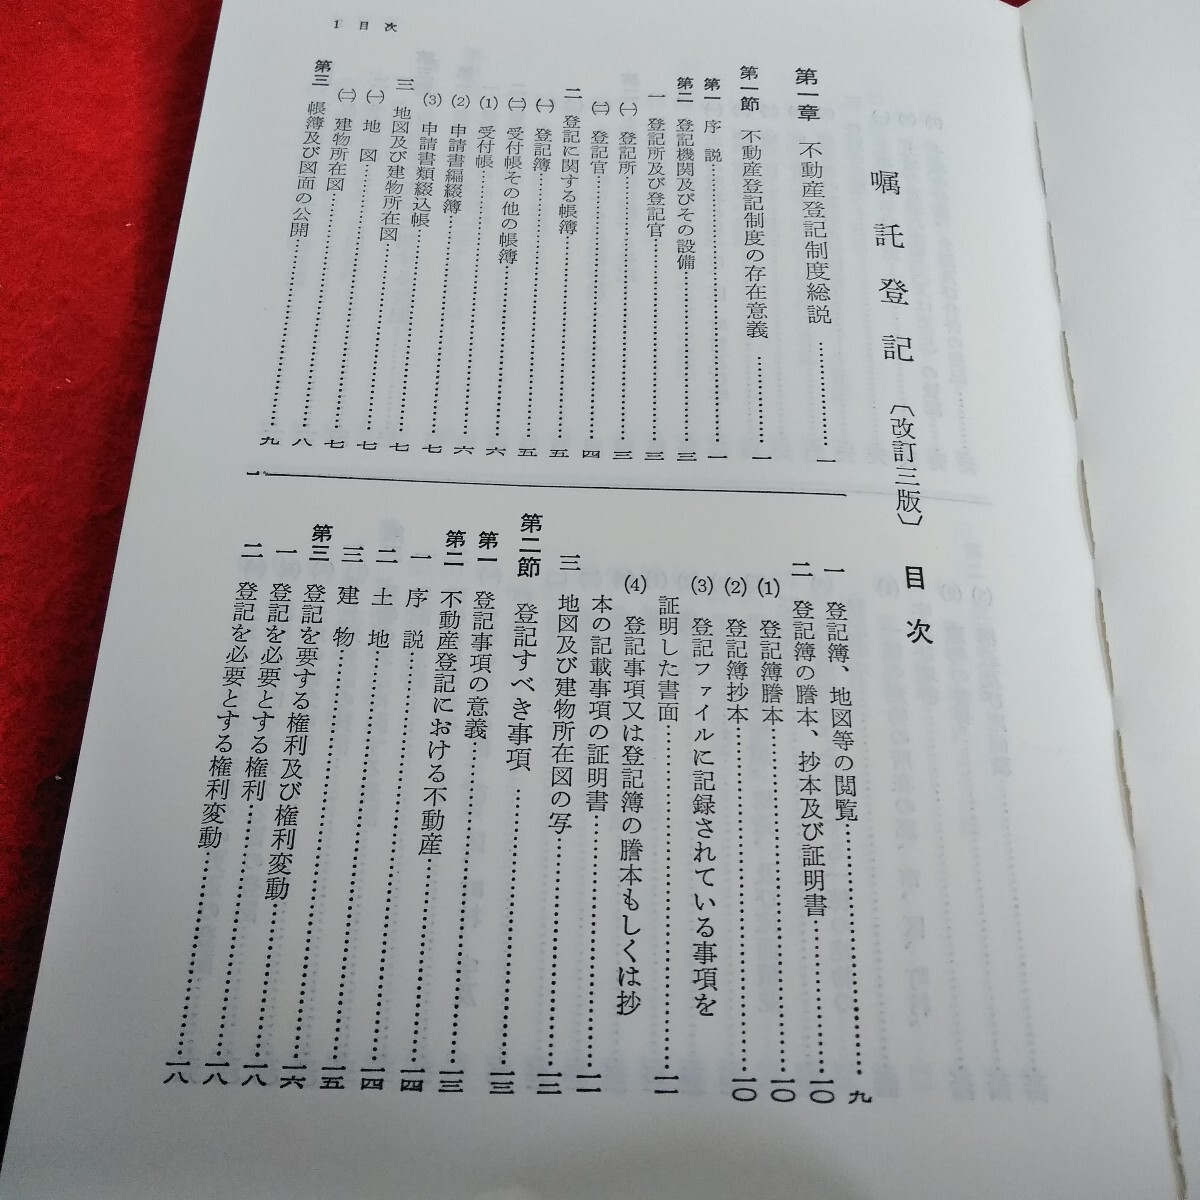 1 目次
嘱託登記〔改訂三版〕 目次
第一章 不動産登記制度総説……一
第一節 不動産登記制度の存在意義……一
第一 序説……一
第二 登記機関及びその設備……三
一 登記所及び登記官……三
㈠ 登記所……三
㈡ 登記官……四
二 登記に関する帳簿……五
㈠ 登記簿……五
㈡ 受付帳その他の帳簿……六
⑴ 受付帳……六
⑵ 申請書編綴簿……七
⑶ 申請書類綴込帳……七
三 地図及び建物所在図……七
㈠ 地図……七
㈡ 建物所在図……八
第三 帳簿及び図面の公開……九
一 登記簿、地図等の閲覧……九
二 登記簿の謄本、抄本及び証明書……一〇
⑴ 登記簿謄本……一〇
⑵ 登記簿抄本……一〇
⑶ 登記ファイルに記録されている事項を
証明した書面……一一
⑷ 登記事項又は登記簿の謄本もしくは抄
本の記載事項の証明書……一一
三 地図及び建物所在図の写……一三
第二節 登記すべき事項……一三
第一 登記事項の意義……一三
第二 不動産登記における不動産……一四
一 序説……一四
二 土地……一四
三 建物……一五
第三 登記を要する権利及び権利変動……一六
一 登記を必要とする権利……一八
二 登記を必要とする権利変動……一八